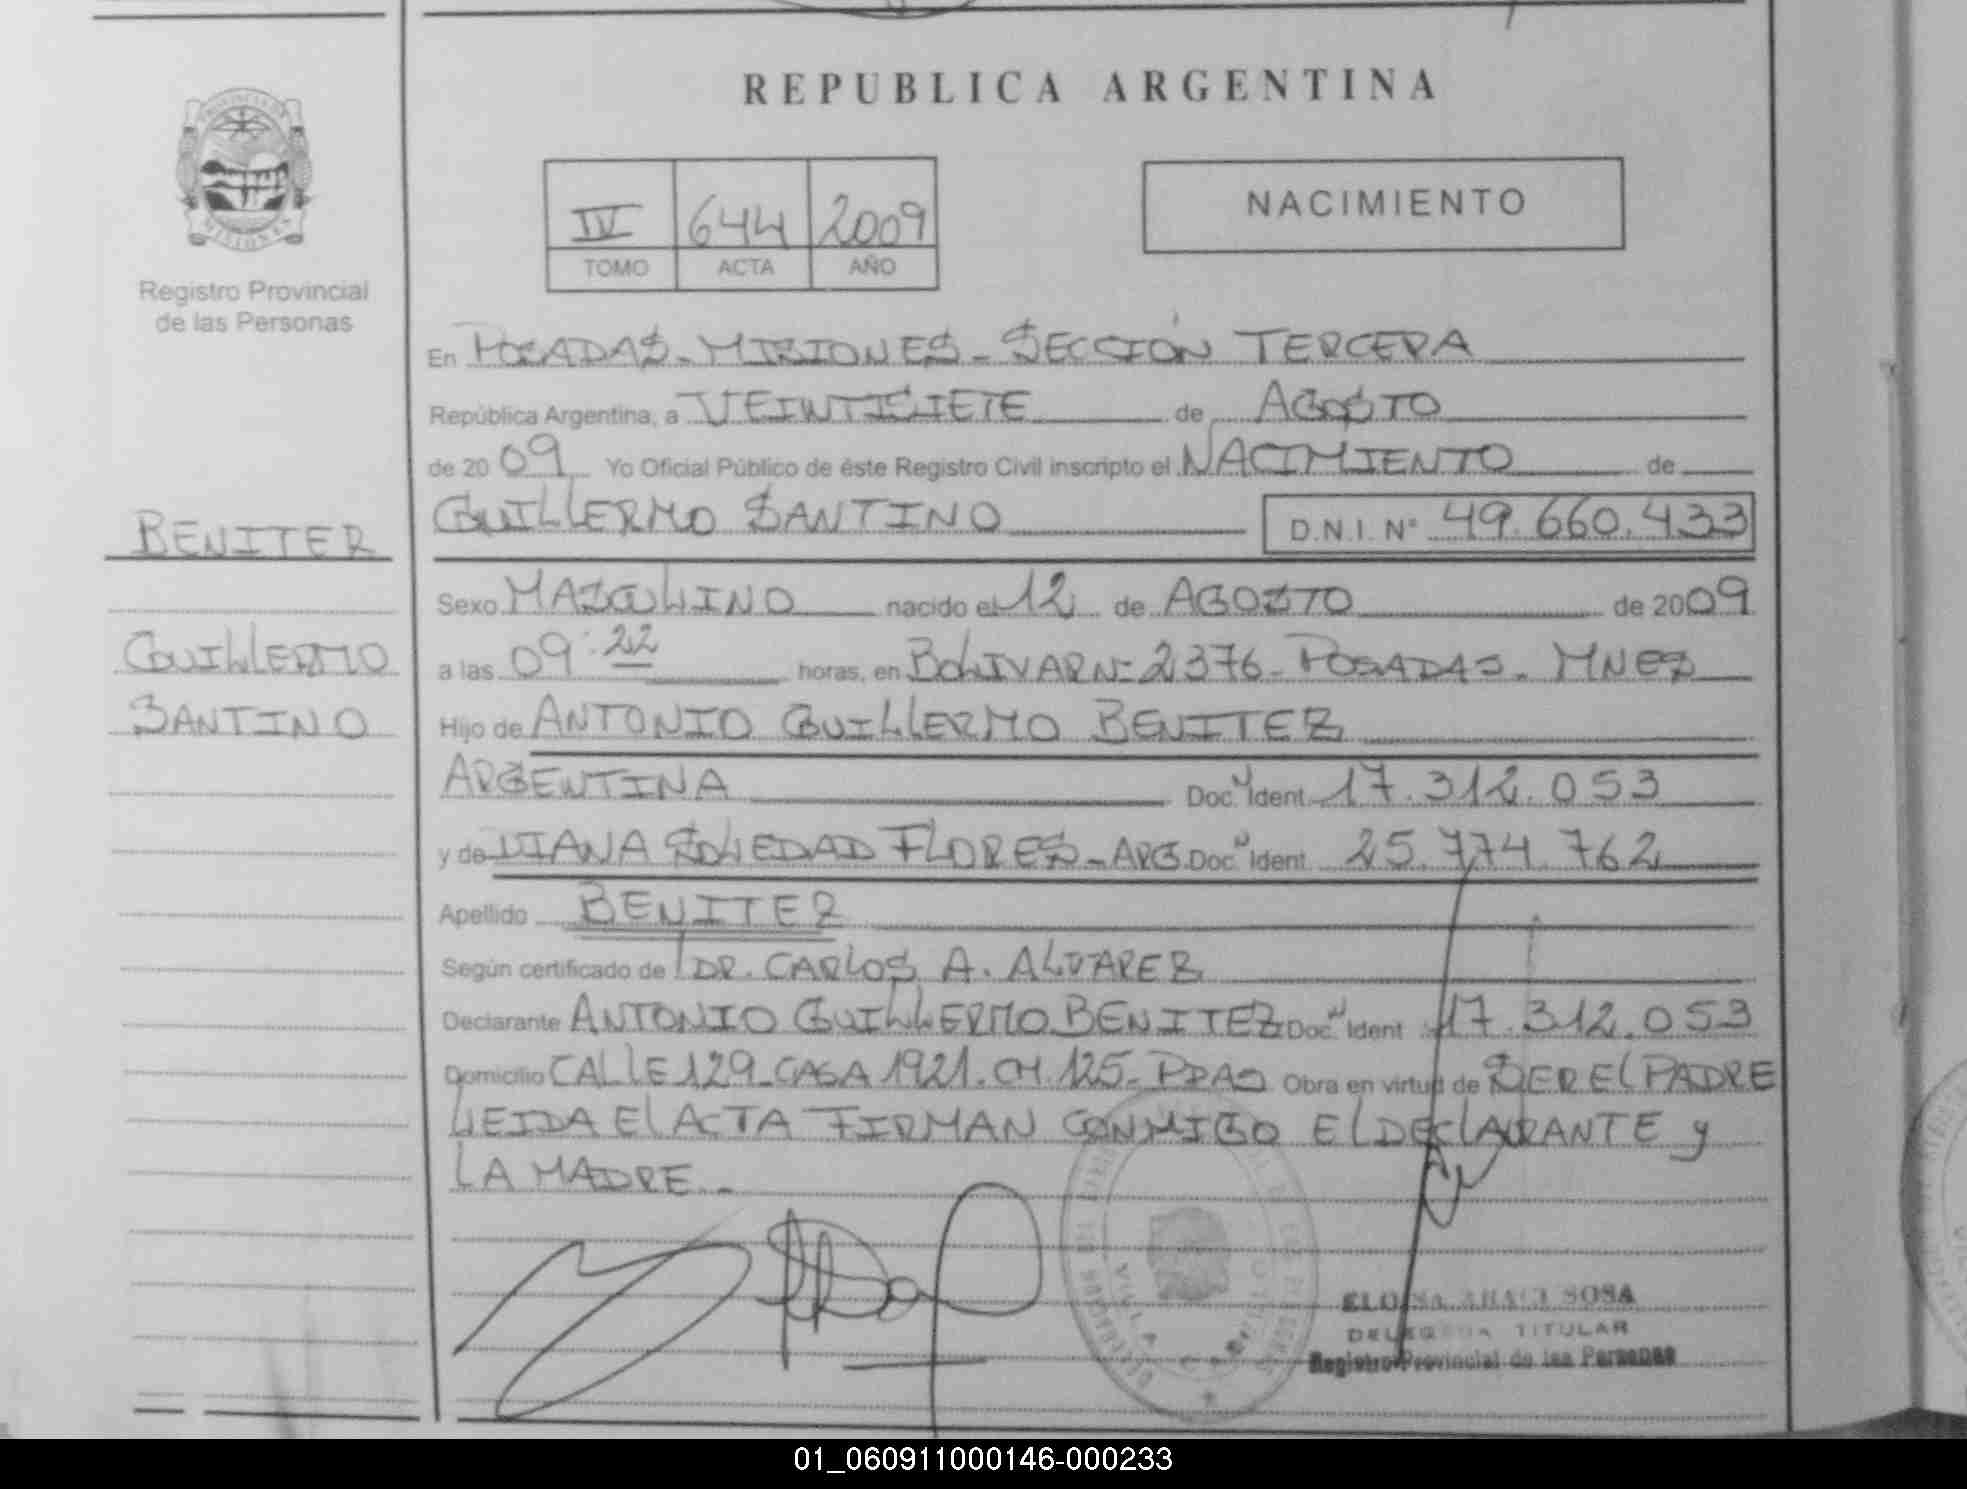 REPUBLICA ARGENTINA
PROVINCIA DE
MISIONES
Registro Provincial
de las Personas
IV 644 2009
TOMO ACTA AÑO
NACIMIENTO
En POSADAS - MISIONES - SECCIÓN TERCERA
República Argentina, a VEINTISIETE de AGOSTO
de 20 09 Yo Oficial Público de éste Registro Civil inscripto el NACIMIENTO de
BENITEZ
GUILLERMO SANTINO D.N.I. N° 49.660.433
Sexo MASCULINO nacido el 12 de AGOSTO de 2009
GUILLERMO
SANTINO
a las 09:22 horas, en BOLIVAR Nº 2376 - POSADAS - MNES
Hijo de ANTONIO GUILLERMO BENITEZ
ARGENTINA Doc. Ident. 17.312.053
y de DIANA SOLEDAD FLORES - ARG. Doc. Ident. 25.774.762
Apellido BENITEZ
Según certificado de DR. CARLOS A. ALVAREZ
Declarante ANTONIO GUILLERMO BENITEZ Doc. Ident. 17.312.053
Domicilio CALLE 129 - CASA 1921 - CH. 125 - PDAS Obra en virtud de SER EL PADRE
LEIDA EL ACTA FIRMAN CONMIGO EL DECLARANTE y
LA MADRE.-
ELOISA ARACI SOSA
DELEGADA TITULAR
Registro Provincial de las Personas
01_060911000146-000233